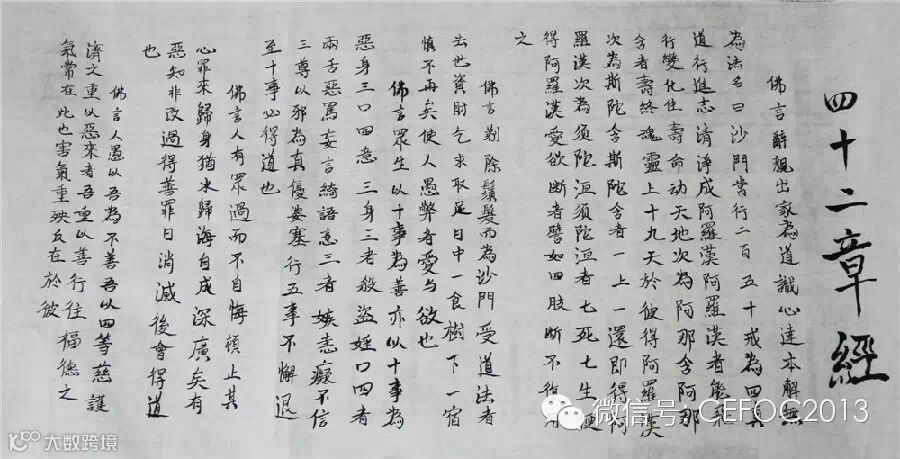 四十二章經
佛言辭親出家為道識心達本解無
為法名曰沙門常行二百五十戒為四真
道行進志清淨成阿羅漢阿羅漢者能飛
行變化住壽命动天地次為阿那含阿那
含者壽終魂靈上十九天於彼得阿羅漢
次為斯陀含斯陀含者一上一還即得阿
羅漢次為須陀洹須陀洹者七死七生便
得阿羅漢愛欲斷者譬如四肢斷不復用
之
佛言剃除鬚髮而為沙門受道法者
去世資財乞求取足日中一食樹下一宿
慎不再矣使人愚弊者愛与欲也
佛言眾生以十事為善亦以十事為
惡身三口四意三身三者殺盜婬口四者
兩舌惡罵妄言綺語意三者嫉恚癡不信
三尊以邪為真優婆塞行五事不懈退
至十事必得道也
佛言人有眾過而不自悔頓止其
心罪來歸身猶水歸海自成深廣矣有
惡知非改過得善罪日消滅後會得道
也
佛言人愚以吾為不善吾以四等慈護
濟文重以惡來者吾重以善行往福德之
氣常在此也害氣重殃反在於彼
微信号:CEFOC2013
大数跨境